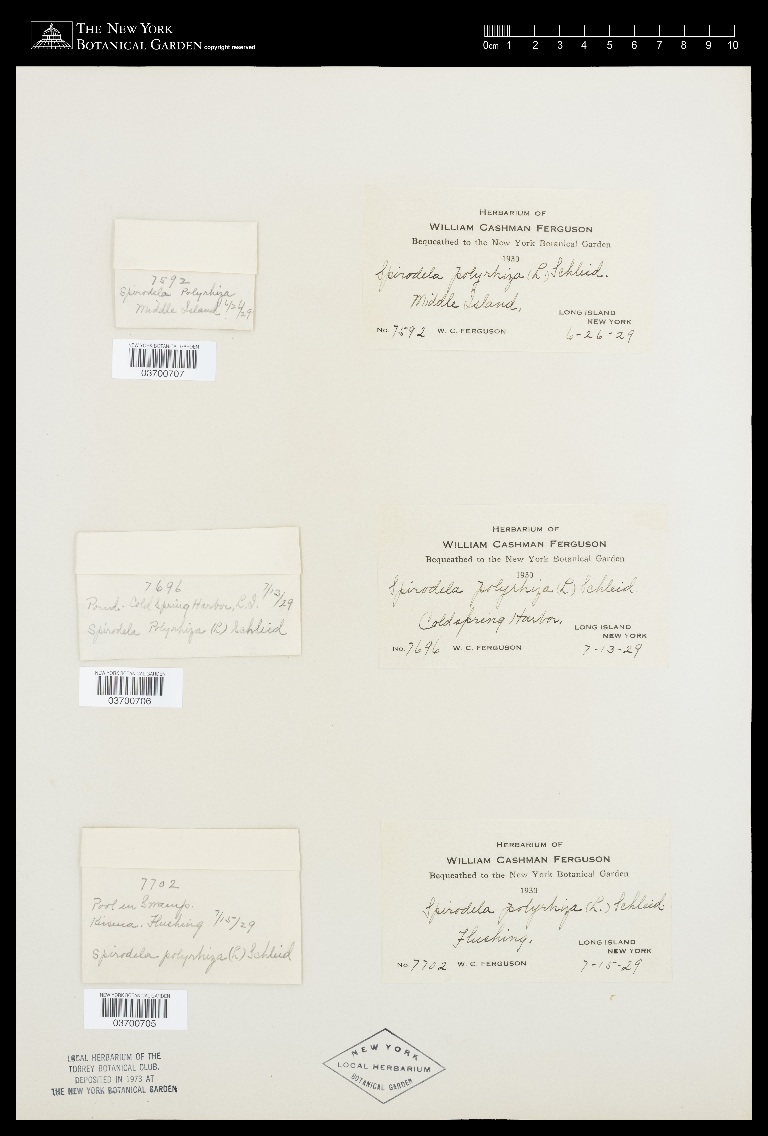 THE NEW YORK
BOTANICAL GARDEN copyright reserved
0cm 1 2 3 4 5 6 7 8 9 10
7592
Spirodela Polyrhiza
Middle Island 6/26/29
NEW YORK BOTANICAL GARDEN
03700707
HERBARIUM OF
WILLIAM CASHMAN FERGUSON
Bequeathed to the New York Botanical Garden
1930
Spirodela polyrhiza (L.) Schleid.
Middle Island,
LONG ISLAND
NEW YORK
No. 7592 W. C. FERGUSON 6-26-29
7696
Pond. Cold Spring Harbor, L.I. 7/13/29
Spirodela Polyrhiza (L) Schleid
NEW YORK BOTANICAL GARDEN
03700706
HERBARIUM OF
WILLIAM CASHMAN FERGUSON
Bequeathed to the New York Botanical Garden
1930
Spirodela polyrhiza (L) Schleid
Coldspring Harbor,
LONG ISLAND
NEW YORK
No. 7696 W. C. FERGUSON 7-13-29
7702
Pool in Swamp.
Flushing 7/15/29
Spirodela polyrhiza (L) Schleid
NEW YORK BOTANICAL GARDEN
03700705
HERBARIUM OF
WILLIAM CASHMAN FERGUSON
Bequeathed to the New York Botanical Garden
1930
Spirodela polyrhiza (L.) Schleid
Flushing,
LONG ISLAND
NEW YORK
No. 7702 W. C. FERGUSON 7-15-29
LOCAL HERBARIUM OF THE
TORREY BOTANICAL CLUB,
DEPOSITED IN 1973 AT
THE NEW YORK BOTANICAL GARDEN
NEW YORK
LOCAL HERBARIUM
BOTANICAL GARDEN